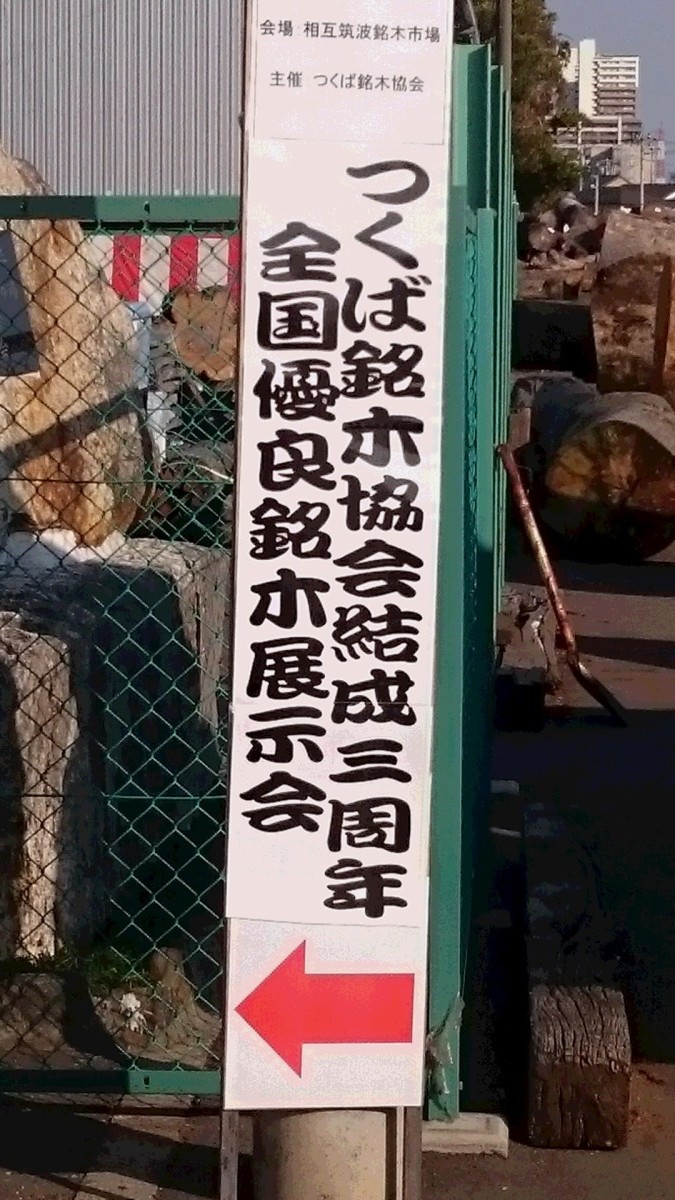 会場 相互筑波銘木市場
主催 つくば銘木協会
つくば銘木協会結成三周年
全国優良銘木展示会